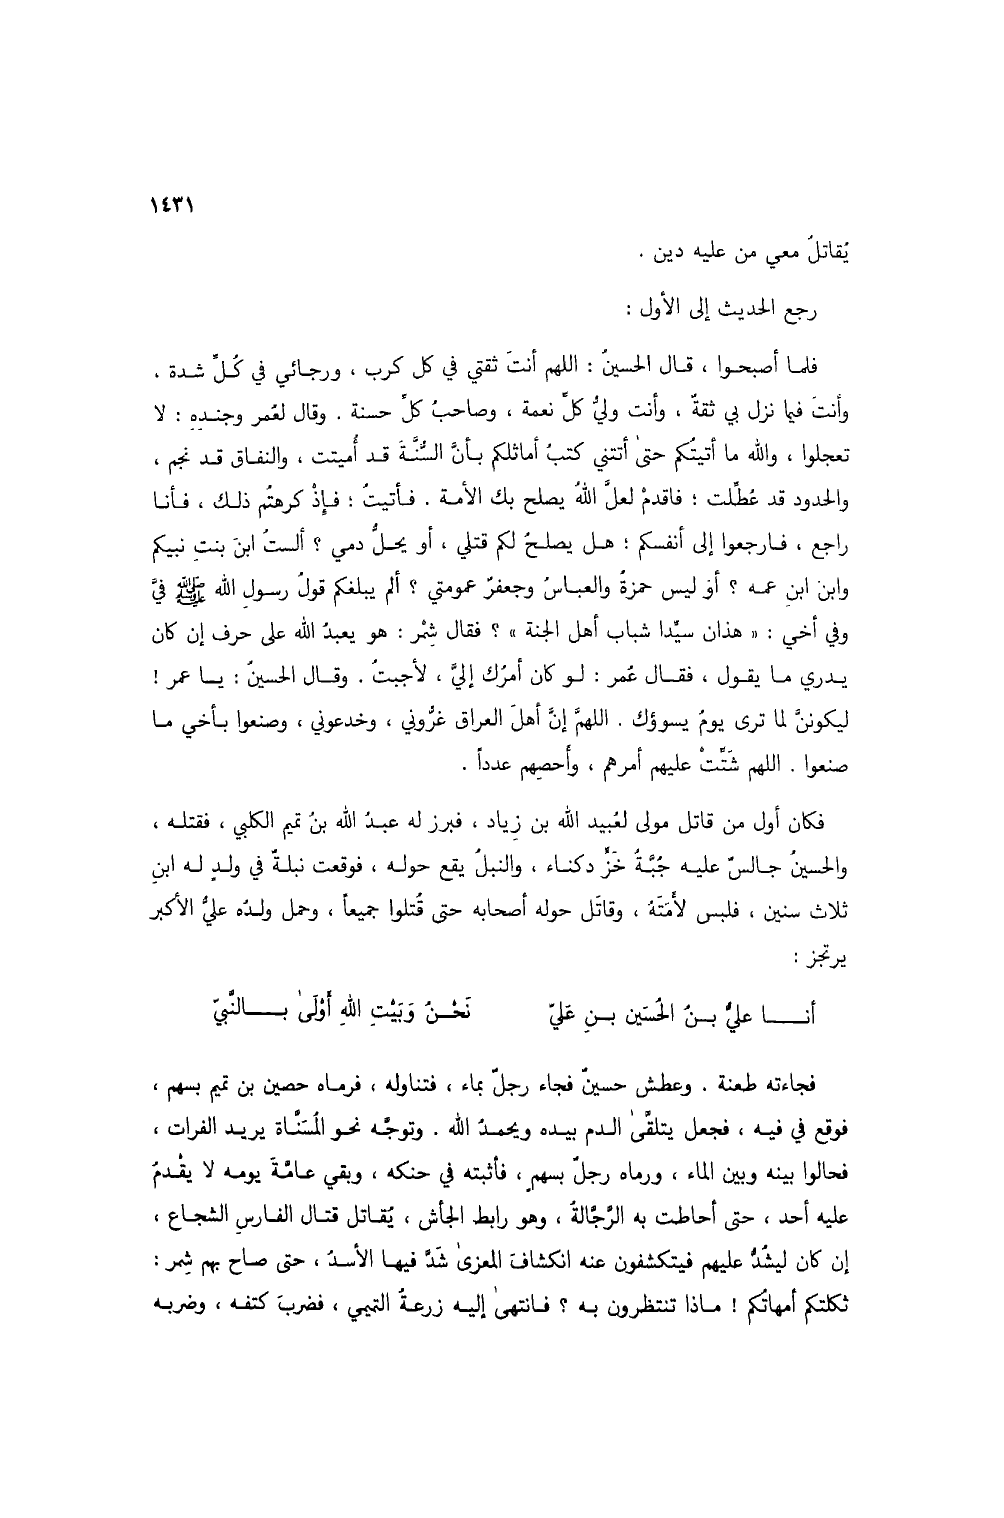 ١٤٣١
يُقاتلُ معي من عليه دين .
رجع الحديث إلى الأول :
فلما أصبحوا ، قال الحسينُ : اللهم أنتَ ثقتي في كل كرب ، ورجائي في كُلِّ شدة ،
وأنتَ فيما نزل بي ثقةٌ ، وأنت وليُّ كلِّ نعمة ، وصاحبُ كلِّ حسنة . وقال لعُمر وجندِهِ : لا
تعجلوا ، والله ما أتيتُكم حتىٰ أتتني كتبُ أماثلكم بأنَّ السُّنَّةَ قد أُميتت ، والنفاق قد نجم ،
والحدود قد عُطِّلت ؛ فاقدمْ لعلَّ اللهُ يصلح بك الأمة . فأتيتُ ؛ فإذْ كرهتُم ذلك ، فأنا
راجع ، فارجعوا إلى أنفسكم ؛ هل يصلحُ لكم قتلي ، أو يحلُّ دمي ؟ ألستُ ابنَ بنتِ نبيكم
وابنَ ابنِ عمه ؟ أوَ ليس حمزةُ والعباسُ وجعفرٌ عمومتي ؟ ألم يبلغكم قولُ رسولِ الله ﷺ فيَّ
وفي أخي : « هذان سيِّدا شباب أهل الجنة » ؟ فقال شِمْر : هو يعبدُ الله على حرف إن كان
يدري ما يقول ، فقال عُمر : لو كان أمرُك إليَّ ، لأجبتُ . وقال الحسينُ : يا عمر !
ليكوننَّ لما ترى يومٌ يسوؤك . اللهمَّ إنَّ أهلَ العراق غرُّوني ، وخدعوني ، وصنعوا بأخي ما
صنعوا . اللهم شَتِّتْ عليهم أمرهم ، وأَحصِهم عدداً .
فكان أول من قاتل مولى لعُبيد الله بن زِياد ، فبرز له عبدُ الله بنُ تميم الكلبي ، فقتله ،
والحسينُ جالسٌ عليه جُبَّةُ خَزٍّ دكناء ، والنبلُ يقع حوله ، فوقعت نبلةٌ في ولدٍ له ابنِ
ثلاث سنين ، فلبس لأْمَتَهُ ، وقاتَل حوله أصحابه حتى قُتلوا جميعاً ، وحمل ولدُه عليُّ الأكبر
يرتجز :
أنا عليُّ بنُ الحُسَين بنِ عَليّ نَحْنُ وَبَيْتِ اللهِ أَوْلَىٰ بالنَّبيّ
فجاءته طعنة . وعطش حسينٌ فجاء رجلٌ بماء ، فتناوله ، فرماه حصين بن تميم بسهم ،
فوقع في فيه ، فجعل يتلقَّىٰ الدم بيده ويحمدُ الله . وتوجَّه نحو المُسَنَّاة يريد الفرات ،
فحالوا بينه وبين الماء ، ورماه رجلٌ بسهمٍ ، فأثبته في حنكه ، وبقي عامَّةَ يومه لا يقْدمُ
عليه أحد ، حتى أحاطت به الرَّجَّالةُ ، وهو رابط الجأش ، يُقاتل قتال الفارسِ الشجاع ،
إن كان ليشُدُّ عليهم فيتكشفون عنه انكشافَ المعزىٰ شَدَّ فيها الأسدُ ، حتى صاح بهم شِمر :
ثكلتكم أمهاتُكم ! ماذا تنتظرون به ؟ فانتهىٰ إليه زرعةُ التميمي ، فضربَ كتفه ، وضربه